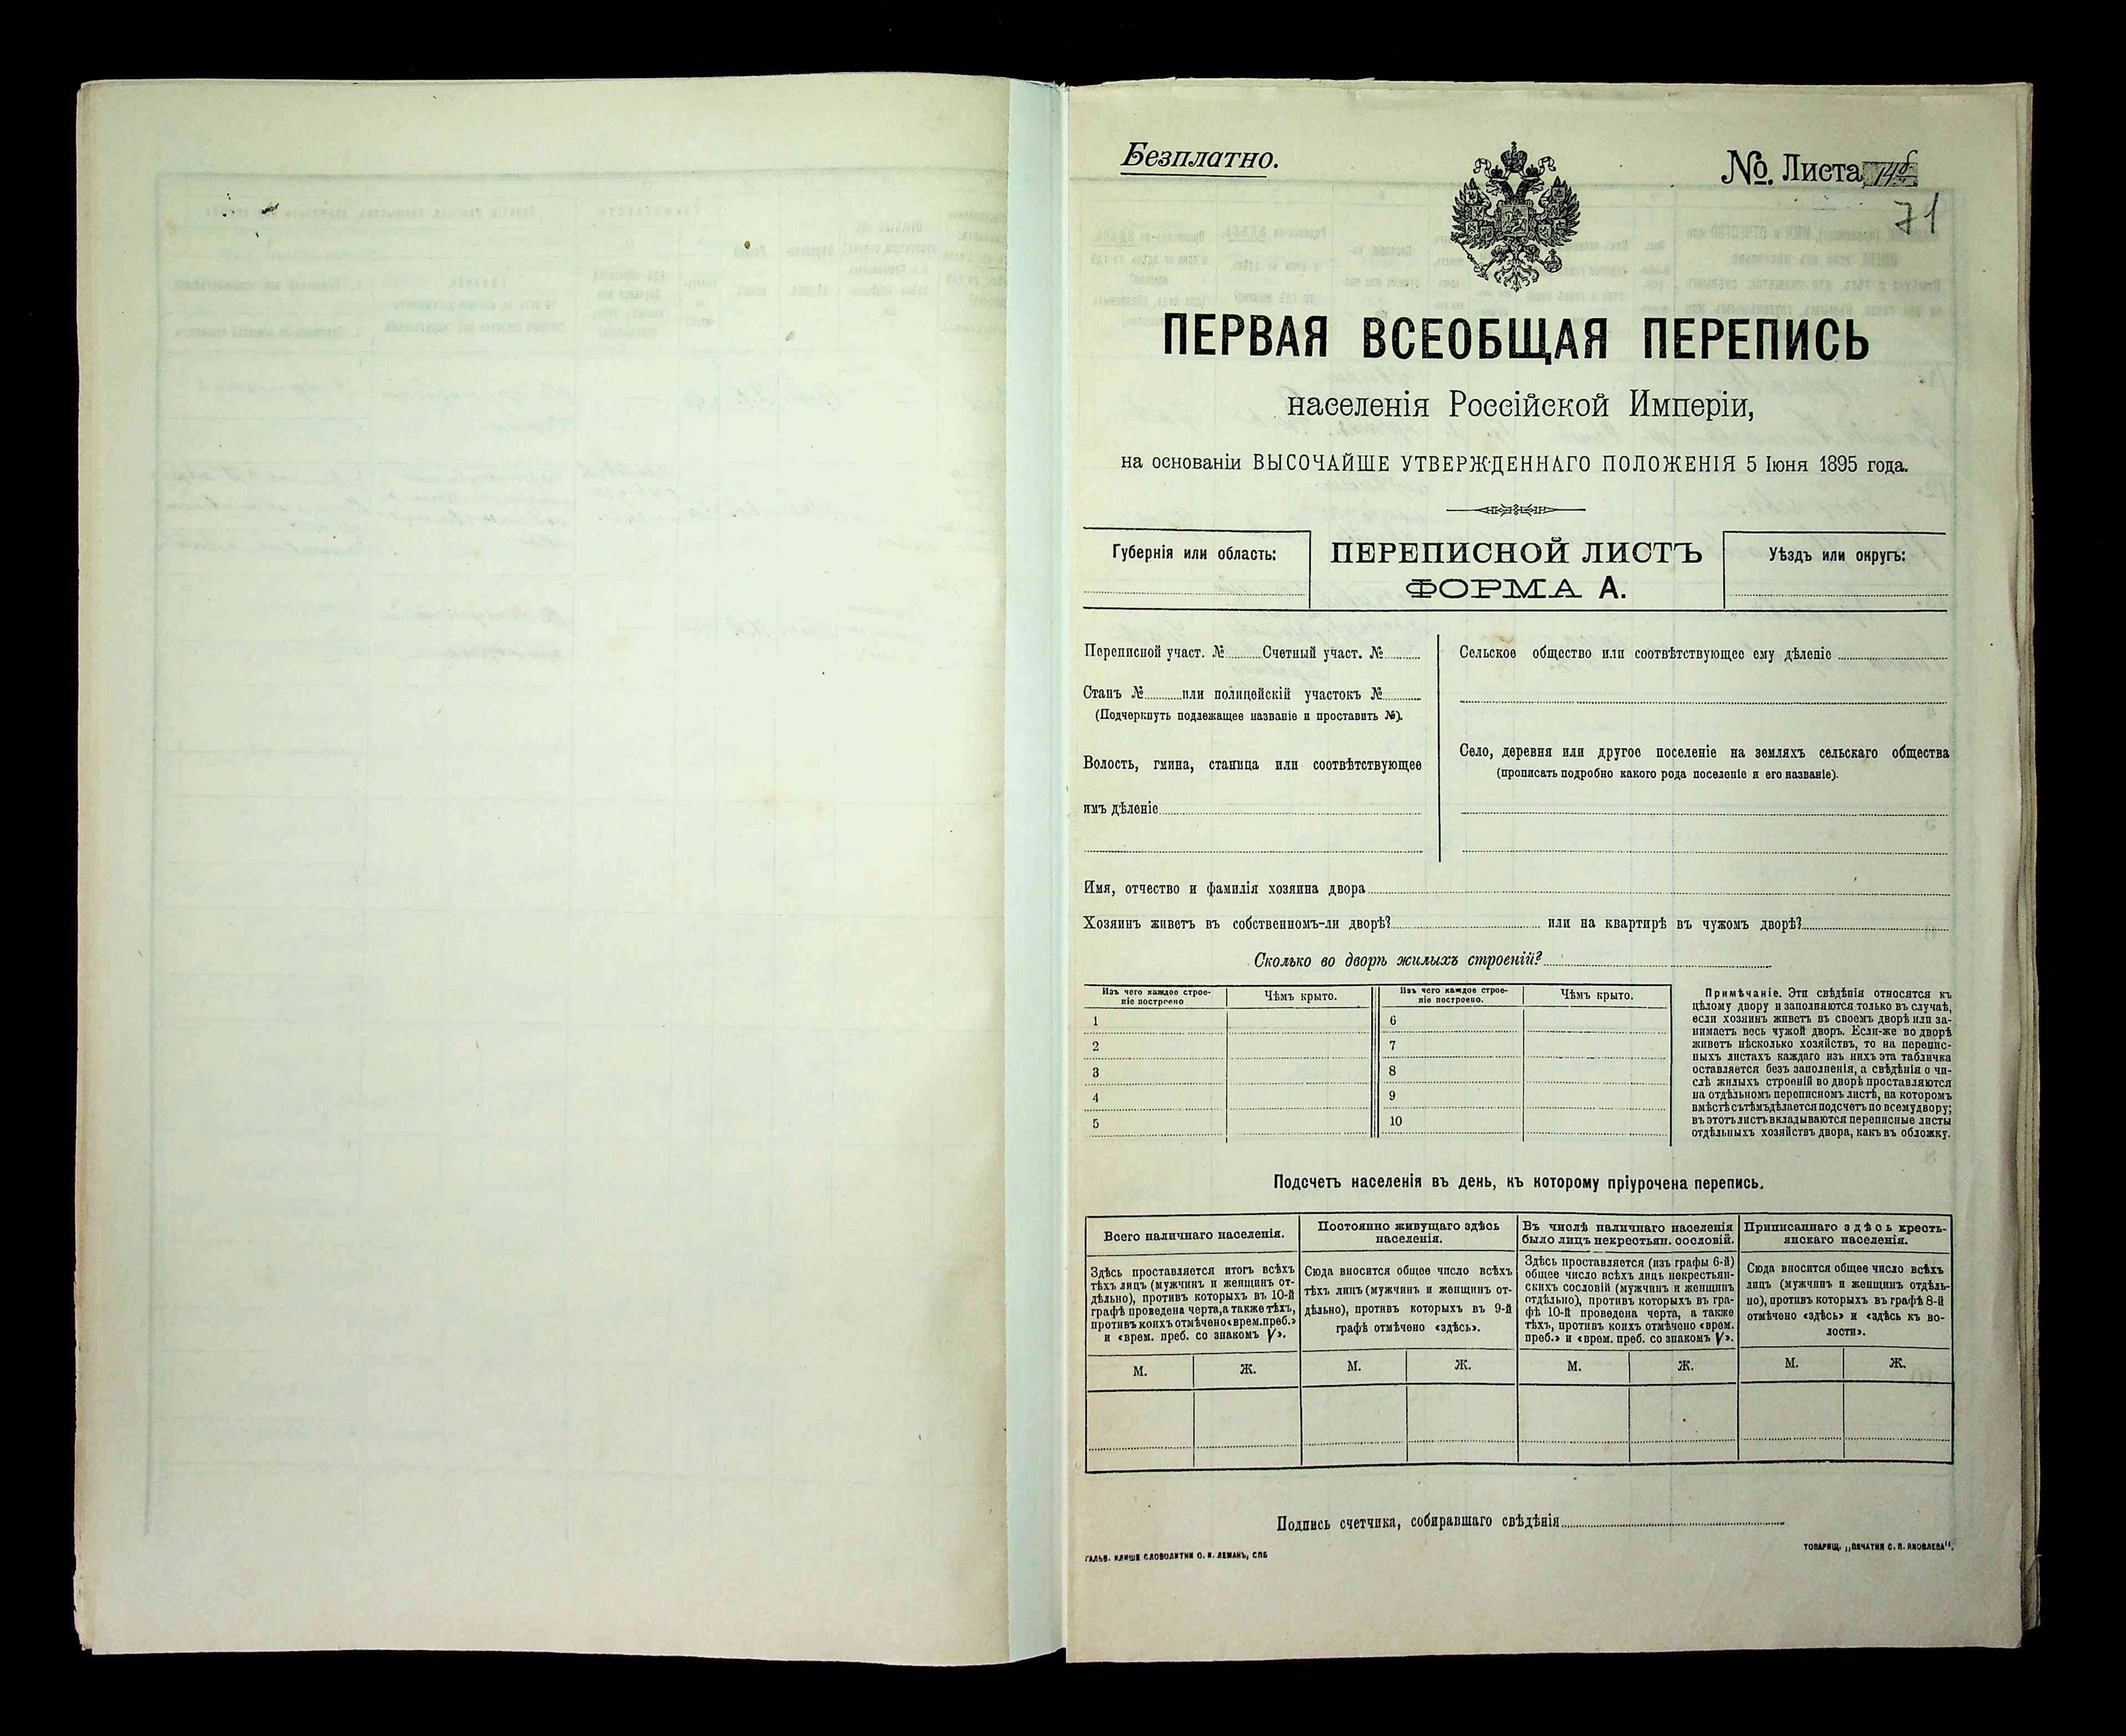 Безплатно.
№. Листа
71
ПЕРВАЯ ВСЕОБЩАЯ ПЕРЕПИСЬ
населенія Россійской Имперіи,
на основаніи ВЫСОЧАЙШЕ УТВЕРЖДЕННАГО ПОЛОЖЕНІЯ 5 Іюня 1895 года.
Губернія или область:
ПЕРЕПИСНОЙ ЛИСТЪ
ФОРМА А.
Уѣздъ или округъ:
Переписной участ. № Счетный участ. №
Станъ № или полицейскій участокъ №
(Подчеркнуть подлежащее названіе и проставить №).
Волость, гмина, станица или соотвѣтствующее
имъ дѣленіе
Сельское общество или соотвѣтствующее ему дѣленіе
Село, деревня или другое поселеніе на земляхъ сельскаго общества
(прописать подробно какого рода поселеніе и его названіе).
Имя, отчество и фамилія хозяина двора
Хозяинъ живетъ въ собственномъ-ли дворѣ? или на квартирѣ въ чужомъ дворѣ?
Сколько во дворѣ жилыхъ строеній?
Изъ чего каждое строе-
ніе построено
Чѣмъ крыто.
1
2
3
4
5
Изъ чего каждое строе-
ніе построено.
Чѣмъ крыто.
6
7
8
9
10
Примѣчаніе. Эти свѣдѣнія относятся къ
цѣлому двору и заполняются только въ случаѣ,
если хозяинъ живетъ въ своемъ дворѣ или за-
нимаетъ весь чужой дворъ. Если-же во дворѣ
живетъ нѣсколько хозяйствъ, то на перепис-
ныхъ листахъ каждаго изъ нихъ эта табличка
оставляется безъ заполненія, а свѣдѣнія о чи-
слѣ жилыхъ строеній во дворѣ проставляются
на отдѣльномъ переписномъ листѣ, на которомъ
вмѣстѣ съ тѣмъ дѣлается подсчетъ по всему двору;
въ этотъ листъ вкладываются переписные листы
отдѣльныхъ хозяйствъ двора, какъ въ обложку.
Подсчетъ населенія въ день, къ которому пріурочена перепись.
Всего наличнаго населенія.
Здѣсь проставляется итогъ всѣхъ
тѣхъ лицъ (мужчинъ и женщинъ от-
дѣльно), противъ которыхъ въ 10-й
графѣ проведена черта, а также тѣхъ,
противъ коихъ отмѣчено «врем. преб.»
и «врем. преб. со знакомъ V».
М. Ж.
Постоянно живущаго здѣсь
населенія.
Сюда вносится общее число всѣхъ
тѣхъ лицъ (мужчинъ и женщинъ от-
дѣльно), противъ которыхъ въ 9-й
графѣ отмѣчено «здѣсь».
М. Ж.
Въ числѣ наличнаго населенія
было лицъ некрестьян. сословій.
Здѣсь проставляется (изъ графы 6-й)
общее число всѣхъ лицъ некрестьян-
скихъ сословій (мужчинъ и женщинъ
отдѣльно), противъ которыхъ въ гра-
фѣ 10-й проведена черта, а также
тѣхъ, противъ коихъ отмѣчено «врем.
преб.» и «врем. преб. со знакомъ V».
М. Ж.
Приписаннаго здѣсь кресть-
янскаго населенія.
Сюда вносится общее число всѣхъ
лицъ (мужчинъ и женщинъ отдѣль-
но), противъ которыхъ въ графѣ 8-й
отмѣчено «здѣсь» и «здѣсь къ во-
лости».
М. Ж.
Подпись счетчика, собиравшаго свѣдѣнія
ГАЛЬВ. КЛИШЕ СЛОВОЛИТНИ О. И. ЛЕМАНЪ, СПБ
ТОВАРИЩ. „ПЕЧАТНЯ С. П. ЯКОВЛЕВА".